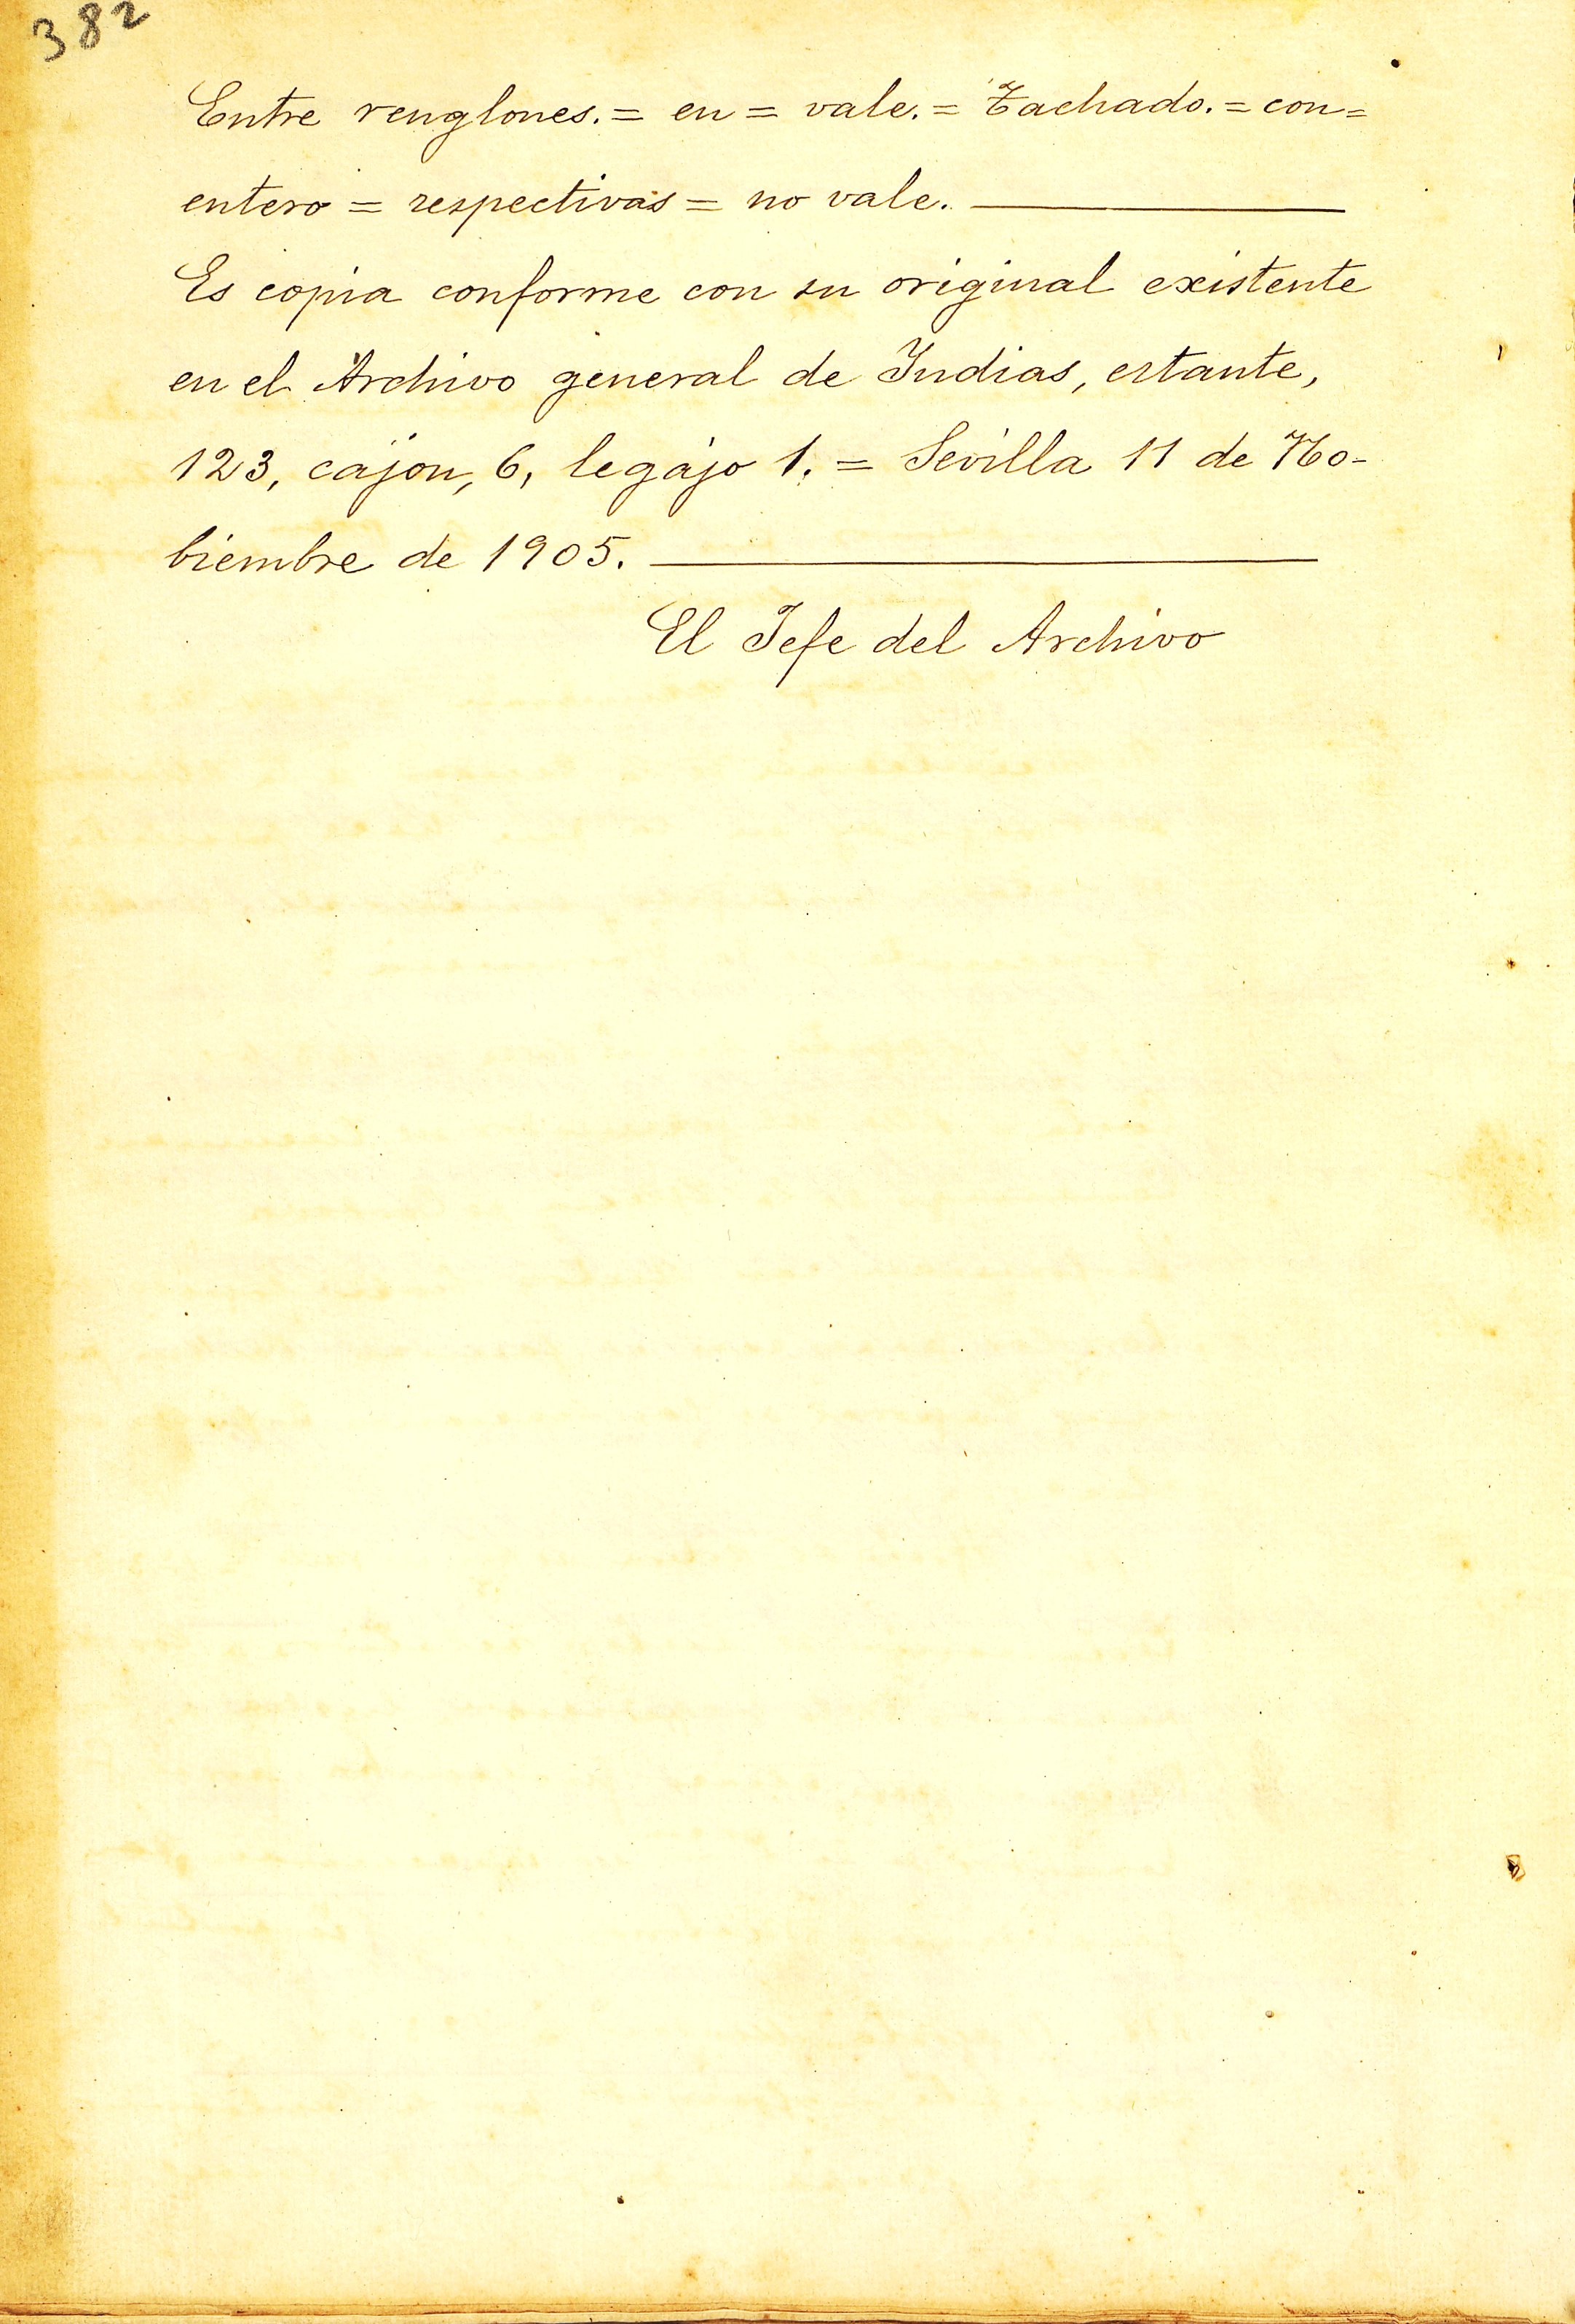 382
Entre renglones. = en = vale. = Tachado. = con=
entero = respectivas = no vale.
Es copia conforme con su original existente
en el Archivo general de Indias, estante,
123, cajon, 6, legajo 1. = Sevilla 11 de No-
biembre de 1905.
El Jefe del Archivo